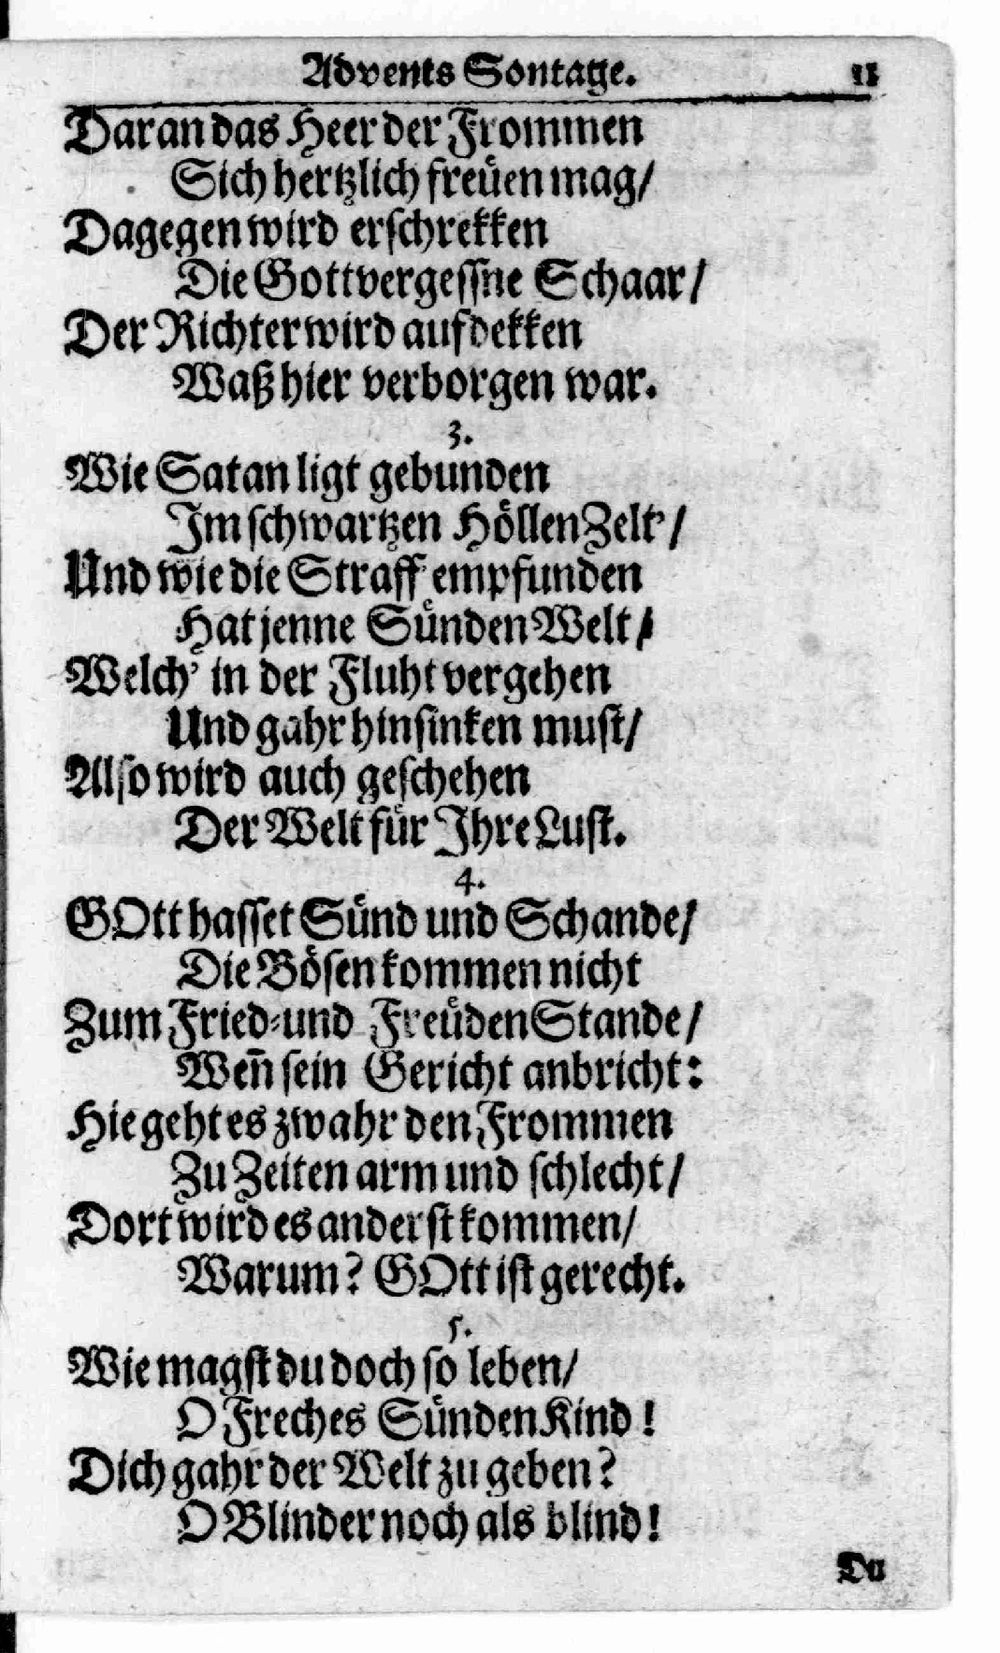 Advents Sontage. 11
Daran das Heer der Frommen
Sich hertzlich freüen mag/
Dagegen wird erschrekken
Die Gottvergessne Schaar/
Der Richter wird aufdekken
Waß hier verborgen war.
3.
Wie Satan ligt gebunden
Im schwartzen Höllen Zelt'/
Und wie die Straff' empfunden
Hat jenne Sünden Welt/
Welch' in der Fluht vergehen
Und gahr hinsinken must/
Also wird auch geschehen
Der Welt für Ihre Lust.
4.
GOtt hasset Sünd und Schande/
Die Bösen kommen nicht
Zum Fried-und Freüden Stande/
Wen̄ sein Gericht anbricht:
Hie geht es zwahr den Frommen
Zu Zeiten arm und schlecht/
Dort wird es anderst kommen/
Warum? GOtt ist gerecht.
5.
Wie magst du doch so leben/
O Freches Sünden Kind!
Dich gahr der Welt zu geben?
O Blinder noch als blind!
Du